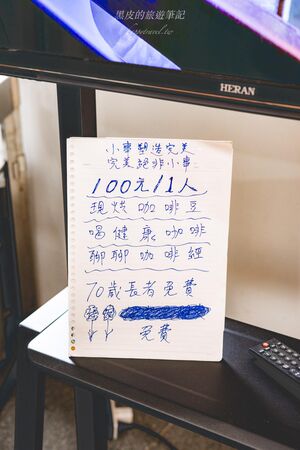 黑皮的旅遊筆記
HERAN
小事塑造完美
完美絕非小事
100元/1人
現烘咖啡豆
喝健康咖啡
聊聊咖啡經
70歲長者免費
免費